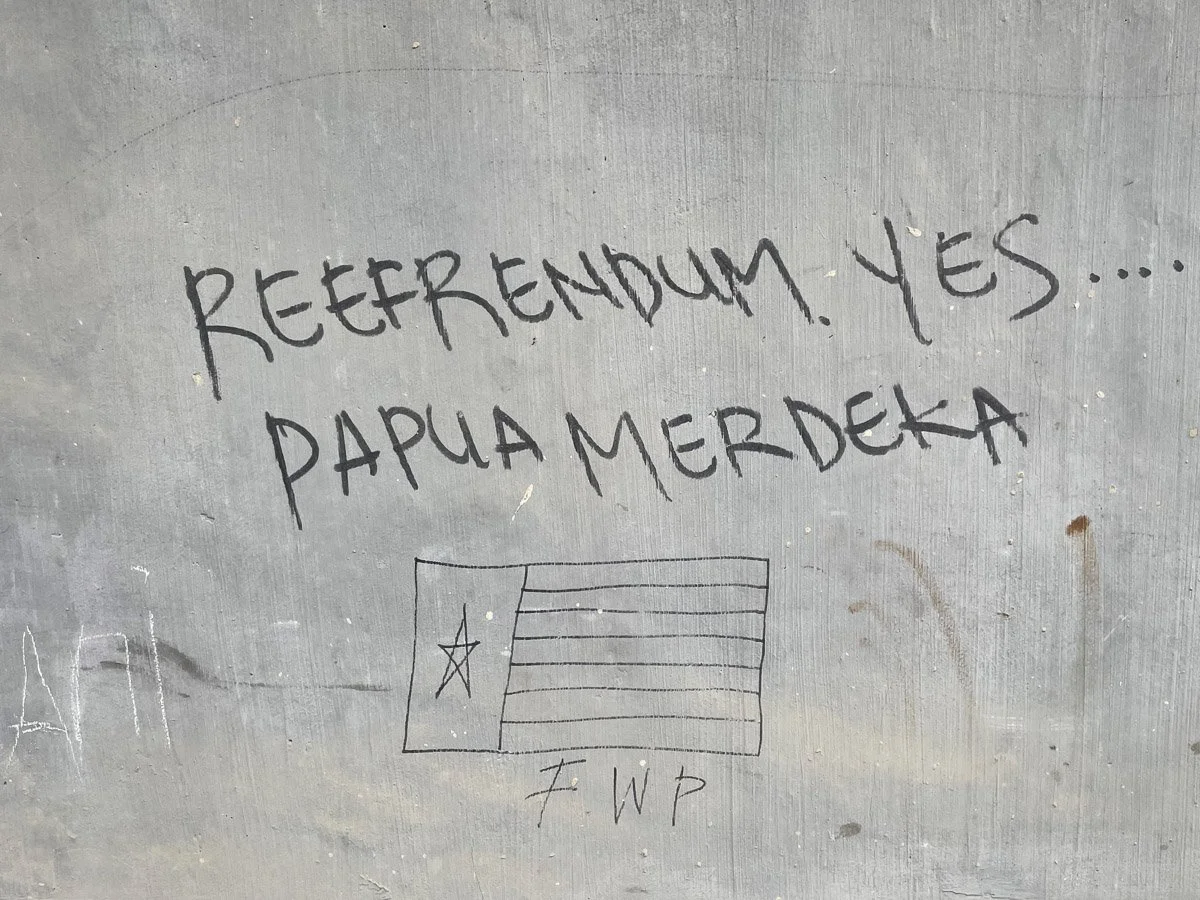 REEFRENDUM. YES....
PAPUA MERDEKA
API
FWP